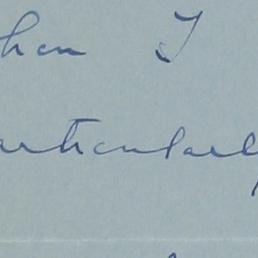 than I
particularly